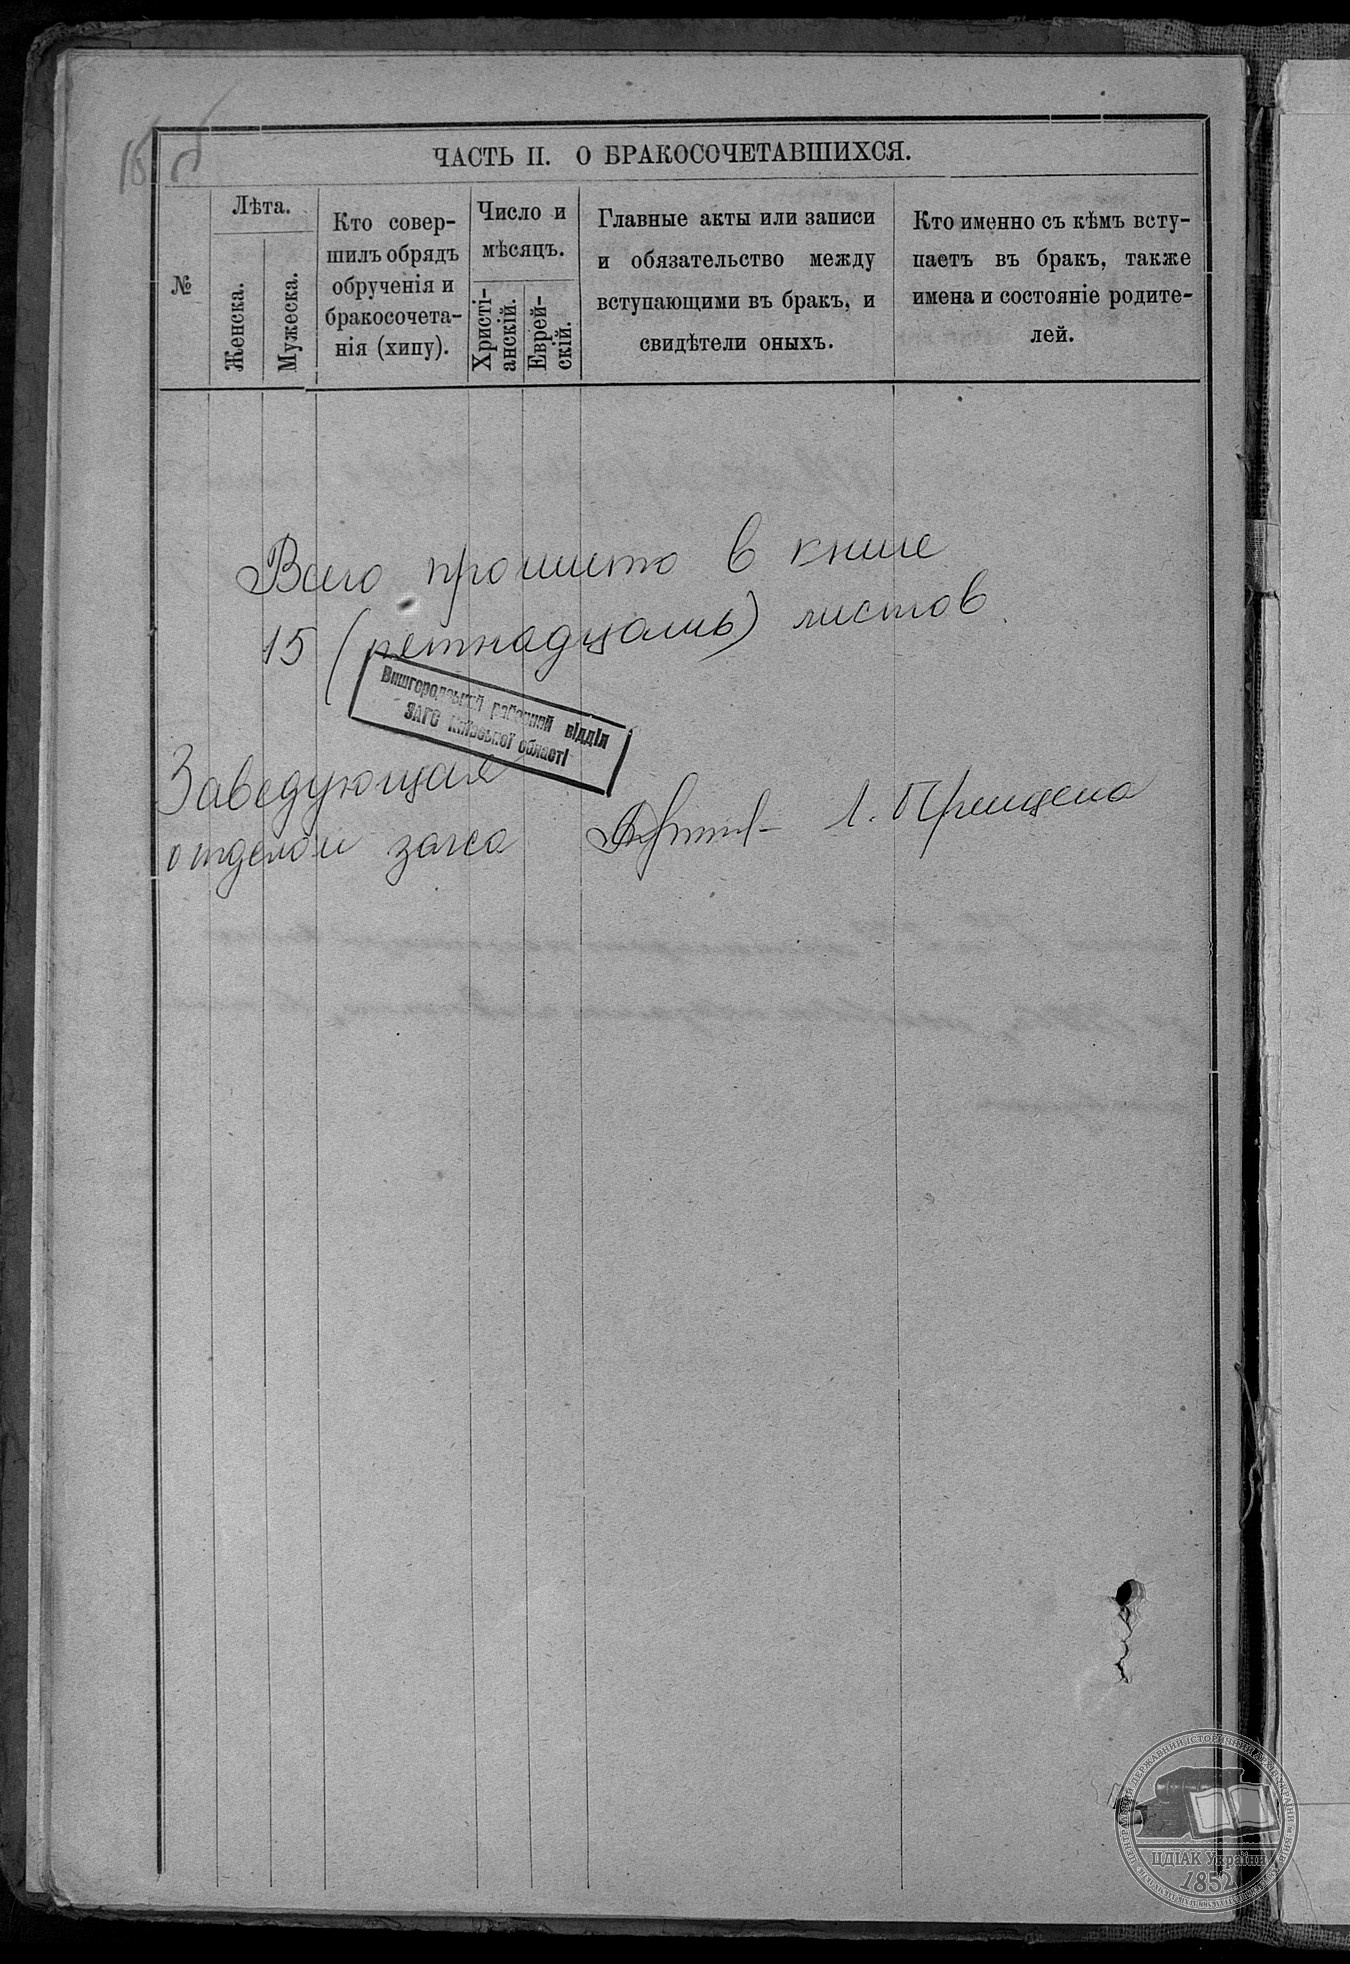 ЧАСТЬ II. О БРАКОСОЧЕТАВШИХСЯ.
№
Лѣта.
Женска.
Мужеска.
Кто совер-
шилъ обрядъ
обрученія и
бракосочета-
нія (хипу).
Число и
мѣсяцъ.
Христі-
анскій.
Еврей-
скій.
Главные акты или записи
и обязательство между
вступающими въ бракъ, и
свидѣтели оныхъ.
Кто именно съ кѣмъ всту-
паетъ въ бракъ, также
имена и состояніе родите-
лей.
Всего прошито в книге
15 (петнадцать) листов.
Вишгородський районний відділ
ЗАГС Київської області
Заведующая
отделом загса Л.
ЦЕНТРАЛЬНИЙ ДЕРЖАВНИЙ ІСТОРИЧНИЙ АРХІВ УКРАЇНИ м. КИЇВ
ЦДІАК України
1852